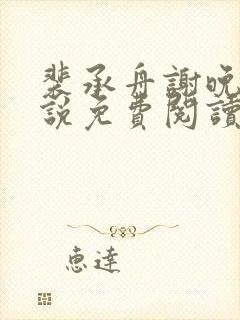 裴承舟謝晚
說免費閱讀
惠達